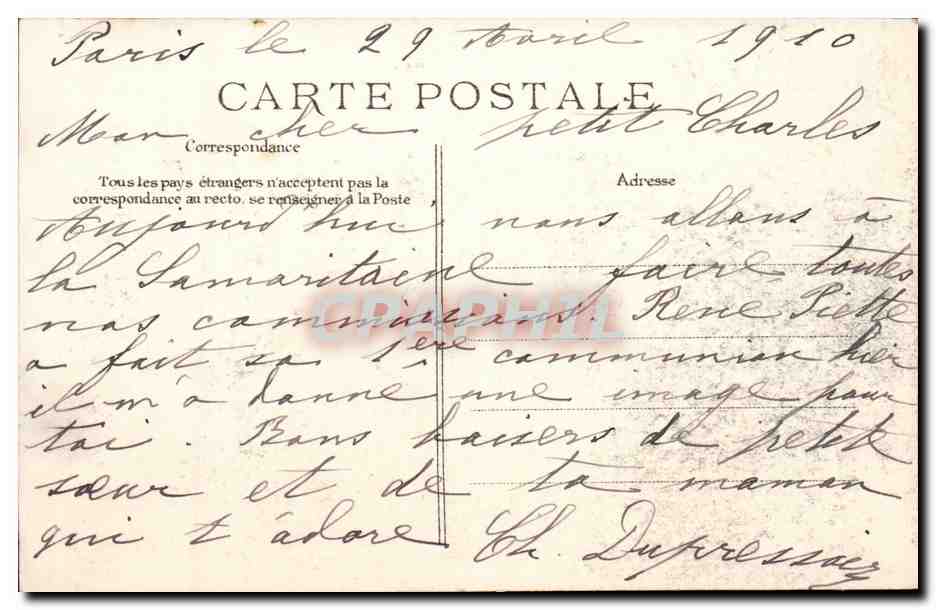 Paris le 29 Avril 1910
CARTE POSTALE
Mon cher petit Charles
Correspondance
Tous les pays étrangers n'acceptent pas la
correspondance au recto. se renseigner à la Poste
Adresse
Aujourd'hui nous allons à
la Samaritaine faire toutes
nos commissions. René Piette
a fait sa 1ère communion hier
il m'a donné une image pour
toi. Bons baisers de petite
sœur et de ta maman
qui t'adore Ch. Dupressoir
CPAPHIL